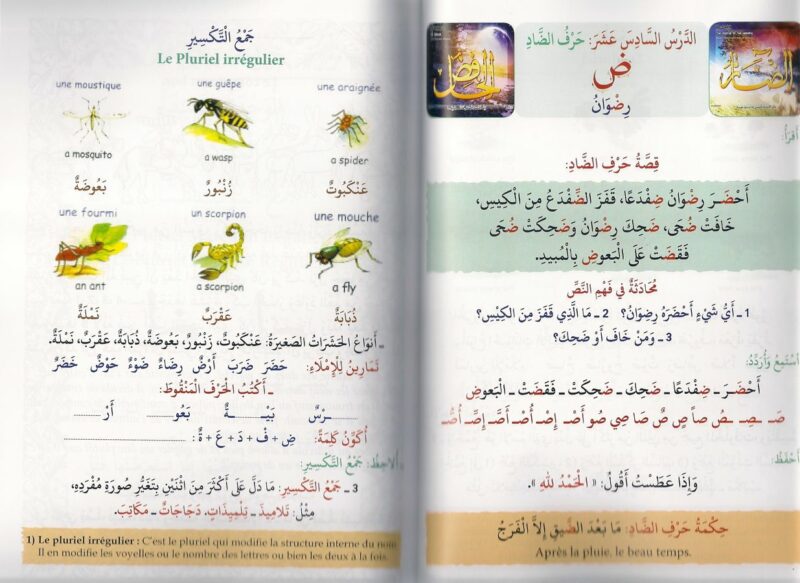 الدَّرْسُ السَّادِسَ عَشَرَ: حَرْفُ الضَّادِ
ض
رِضْوَانُ
الضار
الخافض
أَقْرَأُ:
قِصَّةُ حَرْفِ الضَّادِ:
أَحْضَـرَ رِضْوَانُ ضِفْدَعًا، قَفَزَ الضِّفْدَعُ مِنَ الْكِيسِ،
خَافَتْ ضُحَى، ضَحِكَ رِضْوَانُ وَضَحِكَتْ ضُحَى
فَقَضَتْ عَلَى الْبَعوضِ بِالْمُبيدِ.
مُحَادَثَةٌ فِي فَهْمِ النَّصِّ
1 ـ أَيُّ شَيْءٍ أَحْضَرَهُ رِضْوَانُ؟ 2 ـ مَا الَّذِي قَفَزَ مِنَ الْكِيْسِ؟
3 ـ وَمَنْ خَافَ أَوْ ضَحِكَ؟
أَسْتَمِعُ وَأُرَدِّدُ:
أَحْضَـرَ ـ ضِفْدَعًا ـ ضَحِكَ ـ ضَحِكَتْ ـ فَقَضَتْ ـ الْبَعوضِ
صَـ ـصِـ ـصُ صاً صٍ صٌ صَا صِي صُو أَصْـ إِصْـ أُصْـ أَصَّـ إِصِّـ أُصُّـ
أَحْفَظُ:
وَإِذَا عَطَسْتُ أَقُولُ: « الْحَمْدُ للهِ ».
حِكْمَةُ حَرْفِ الضَّادِ: مَا بَعْدَ الضِّيقِ إِلاَّ الْفَرَجْ
Après la pluie, le beau temps.
جَمْعُ التَّكْسِيرِ
Le Pluriel irrégulier
une moustique une guêpe une araignée
a mosquito a wasp a spider
عَنْكَبُوتٌ زُنْبُورٌ بَعُوضَةٌ
une fourmi un scorpion une mouche
an ant a scorpion a fly
ذُبَابَةٌ عَقْرَبٌ نَمْلَةٌ
ـ أَنْوَاعُ الْحَشَرَاتُ الصَّغِيرَةُ: عَنْكَبُوتٌ، زُنْبُورٌ، بَعُوضَةٌ، ذُبَابَةٌ، عَقْرَبٌ، نَمْلَةٌ.
تَمَارِينُ لِلْإِمْلَاءِ: حَضَرَ ضَرَبَ أَرْضٌ رِضَاءٌ ضَوْءٌ حَوْضٌ خَضَرٌ
ـ أَكْتُبُ الْحَرْفَ الْمَنْقُوطَ:
........ـرْسٌ بَيْـ........ـةٌ بَعُو........ أَرْ........
أُكَوِّنُ كَلِمَةً: ضِ + فْ + دَ + عَ + ةٌ : ........................
أُلاَحِظُ: جَمْعُ التَّكْسِيرِ:
3 ـ جَمْعُ التَّكْسِيرِ: مَا دَلَّ عَلَى أَكْثَرَ مِنَ اثْنَيْنِ بِتَغَيُّرِ صُورَةِ مُفْرَدِهِ،
مِثْلُ: تَلاَمِيذَ ـ تِلْمِيذَاتٍ. دَجَاجَاتٌ ـ مَكَاتِبَ.
1) Le pluriel irrégulier : C'est le pluriel qui modifie la structure interne du nom.
Il en modifie les voyelles ou le nombre des lettres ou bien les deux à la fois.